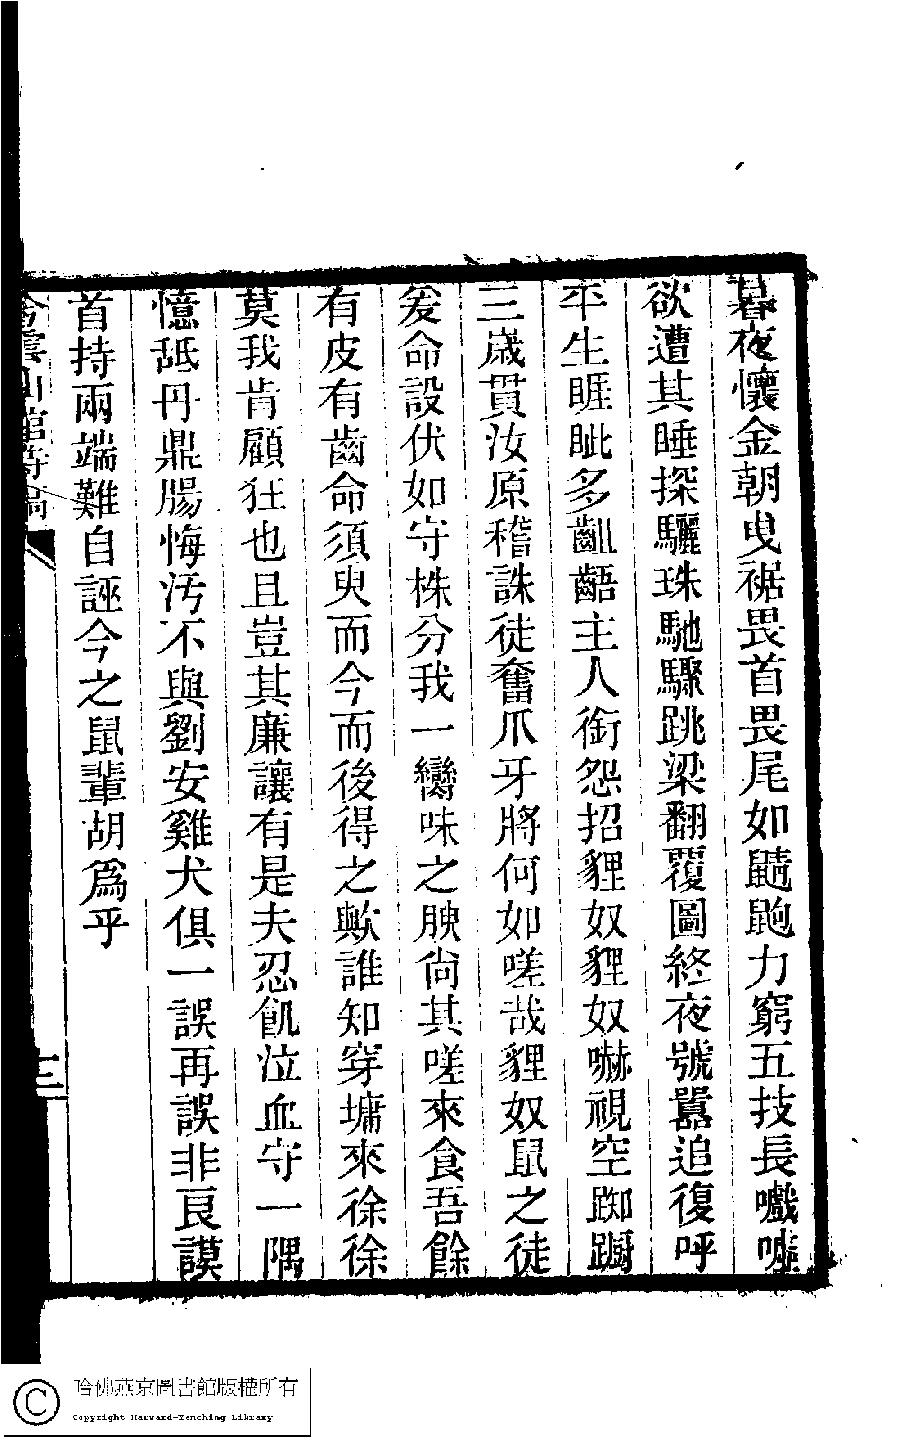 暮夜懷金朝曳裾畏首畏尾如鼱鼩力窮五技長嚱嘘
欲遭其睡探驪珠馳驟跳梁翻覆圖終夜號囂追復呼
平生睚眦多齟齬主人銜怨招貍奴貍奴嚇視空踟躕
三歲貫汝原稽誅徒奮爪牙將何如嗟哉貍奴鼠之徒
爰命設伏如守株分我一臠味之腴尙其嗟來食吾餘
有皮有齒命須臾而今而後得之歟誰知穿墉來徐徐
莫我肯顧狂也且豈其廉讓有是夫忍飢泣血守一隅
憶舐丹鼎腸悔汚不與劉安雞犬俱一誤再誤非良謨
首持兩端難自誣今之鼠輩胡爲乎
雲山館詩稿
十二
哈佛燕京圖書館版權所有
Copyright Harvard-Yenching Library